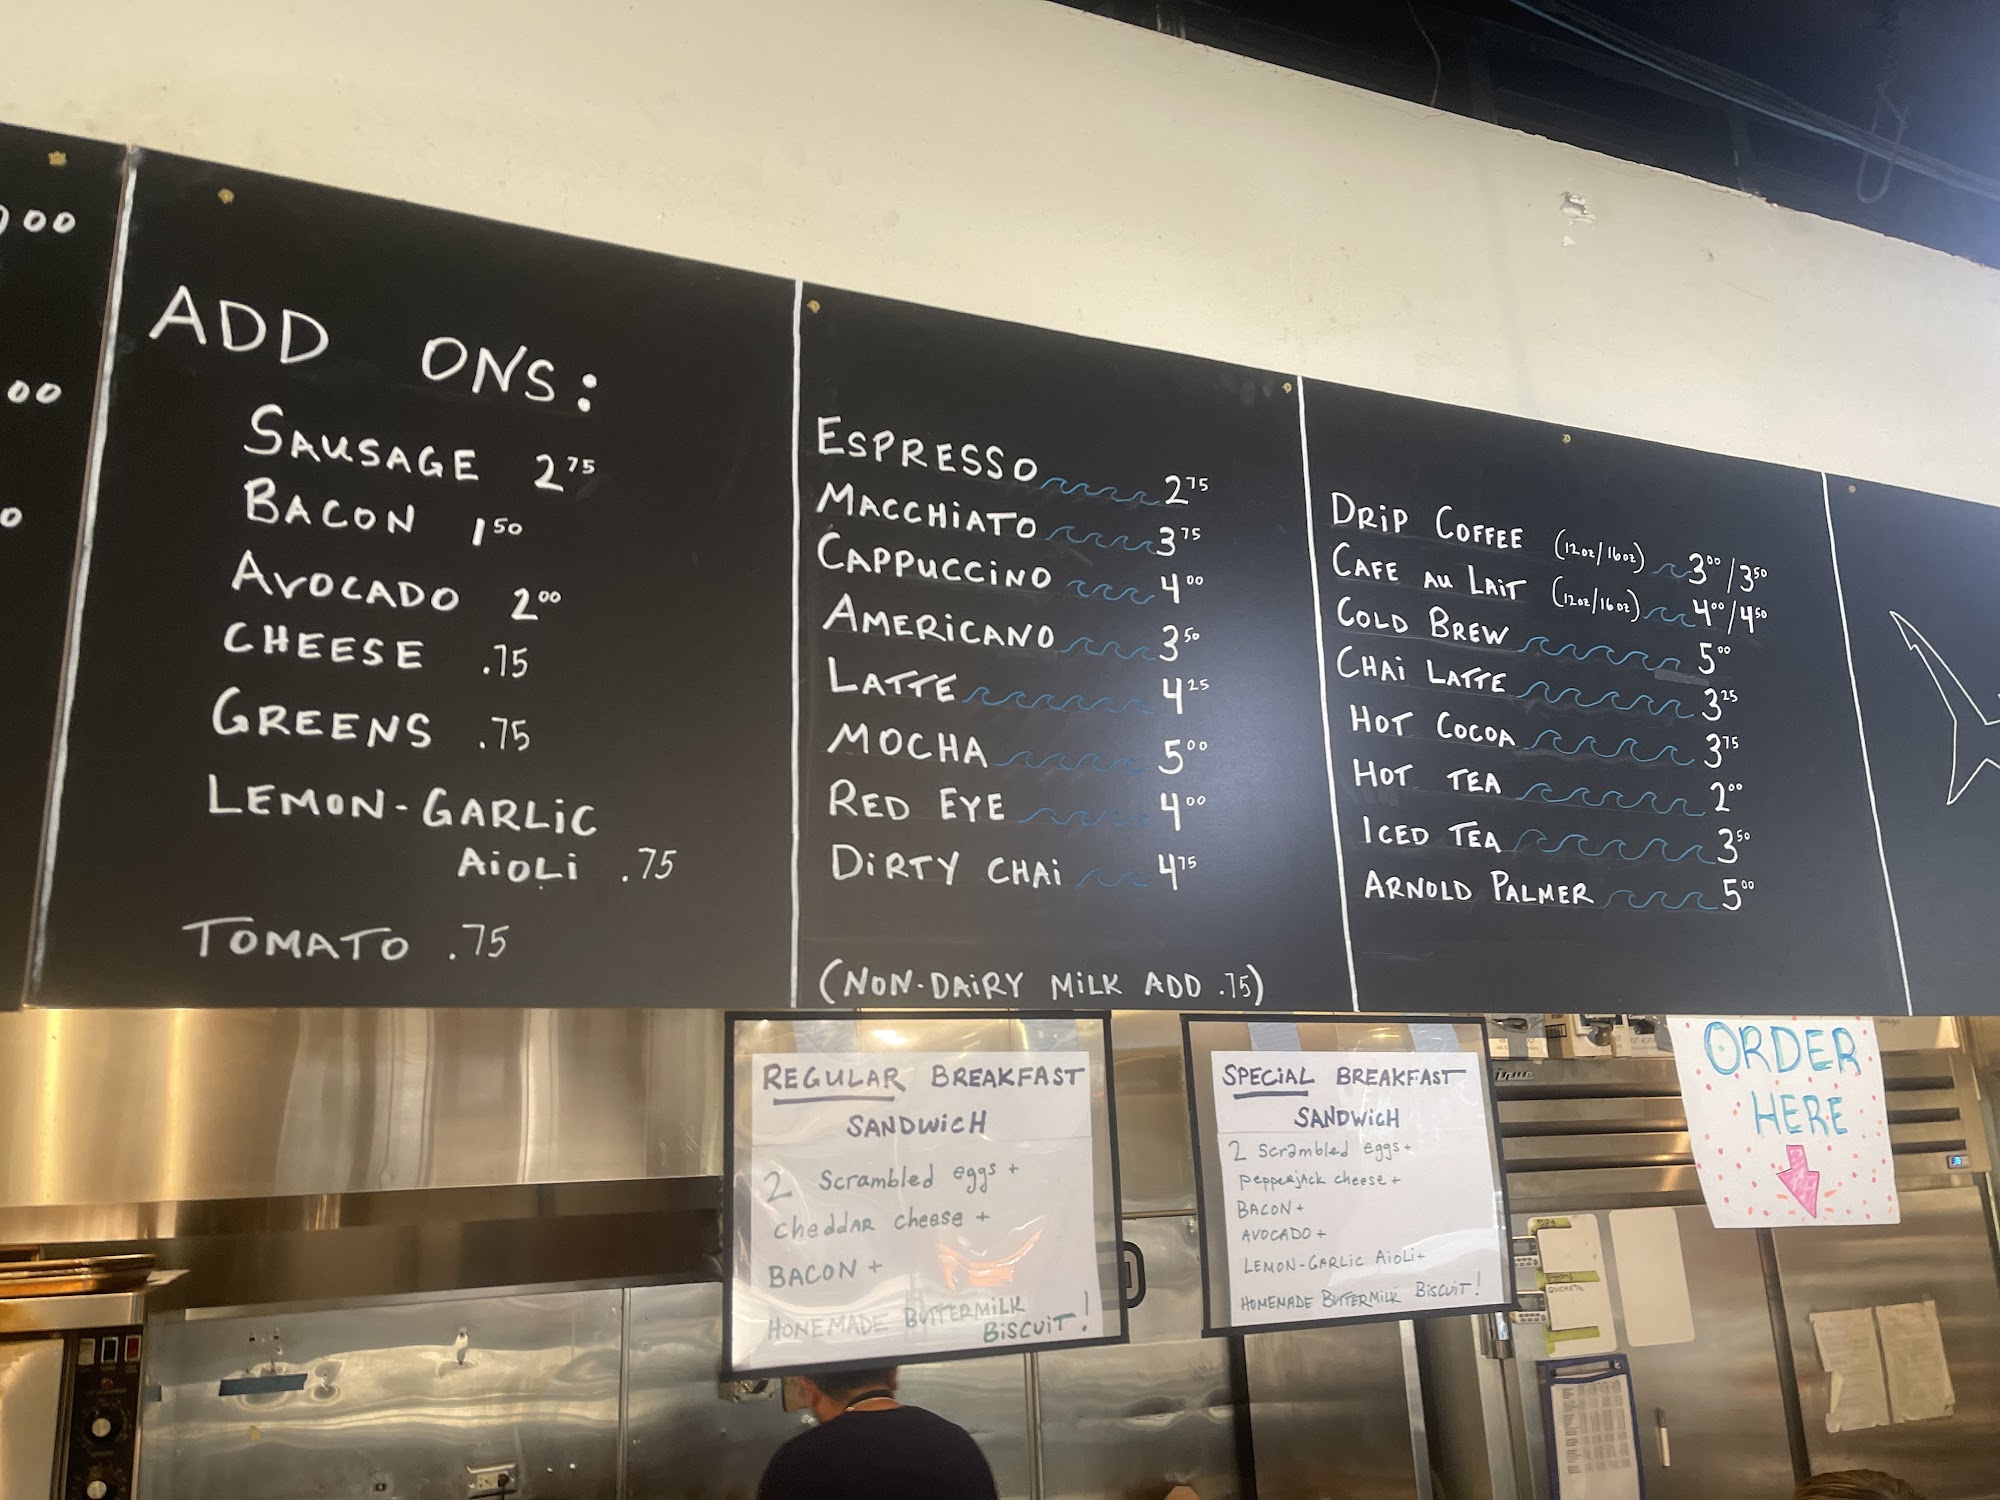 00
00
ADD ONS:
SAUSAGE 2 75
BACON 1 50
AVOCADO 2 00
CHEESE .75
GREENS .75
LEMON-GARLIC
AIOLI .75
TOMATO .75
ESPRESSO 2 75
MACCHIATO 3 75
CAPPUCCINO 4 00
AMERICANO 3 50
LATTE 4 25
MOCHA 5 00
RED EYE 4 00
DIRTY CHAI 4 75
(NON-DAIRY MILK ADD .75)
DRIP COFFEE (12oz/16oz) 3 00/3 50
CAFE AU LAIT (12oz/16oz) 4 00/4 50
COLD BREW 5 00
CHAI LATTE 3 25
HOT COCOA 3 75
HOT TEA 2 00
ICED TEA 3 50
ARNOLD PALMER 5 00
REGULAR BREAKFAST
SANDWICH
2 Scrambled eggs +
cheddar cheese +
BACON +
HOMEMADE BUTTERMILK
BISCUIT!
SPECIAL BREAKFAST
SANDWICH
2 Scrambled eggs +
pepperjack cheese +
BACON +
AVOCADO +
LEMON-GARLIC AIOLI +
HOMEMADE BUTTERMILK BISCUIT!
ORDER
HERE